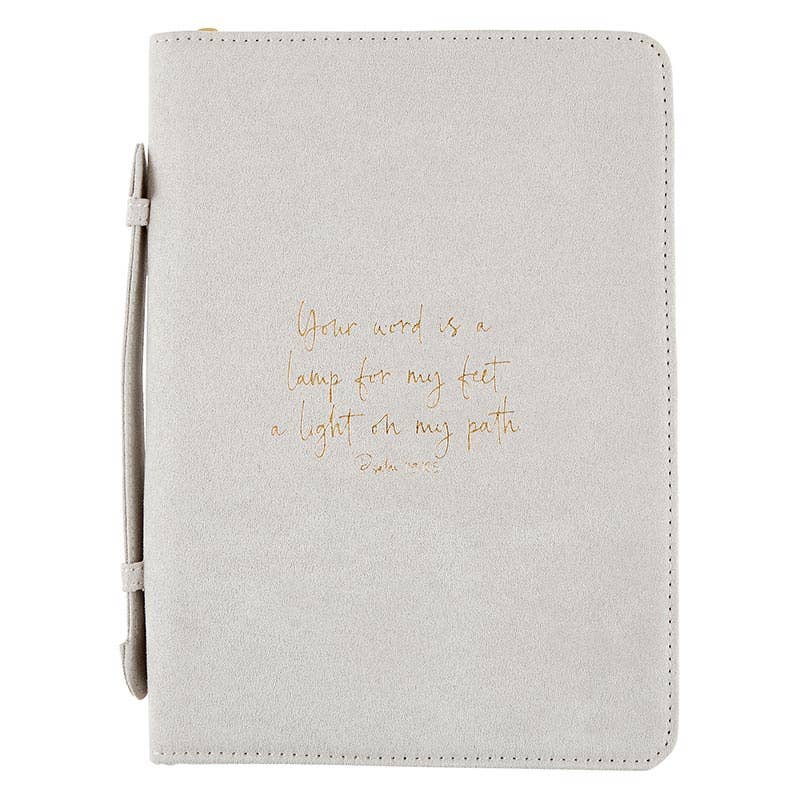 Your word is a
lamp for my feet
a light on my path
Psalm 119:105